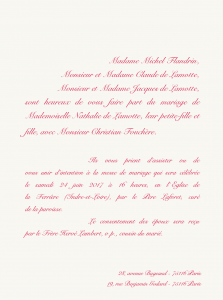 Madame Michel Flandrin,
Monsieur et Madame Claude de Lamotte,
Monsieur et Madame Jacques de Lamotte,
sont heureux de vous faire part du mariage de
Mademoiselle Nathalie de Lamotte, leur petite-fille et
fille, avec Monsieur Christian Fouchère.
Ils vous prient d'assister ou de
vous unir d'intention à la messe de mariage qui sera célébrée
le samedi 24 juin 2017 à 16 heures, en l'Eglise de
la Ferrière (Indre-et-Loire), par le Père Laforêt, curé
de la paroisse.
Le consentement des époux sera reçu
par le Frère Hervé Lambert, o.p., cousin du marié.
28, avenue Bugeaud - 75116 Paris
19, rue Benjamin Godard - 75116 Paris